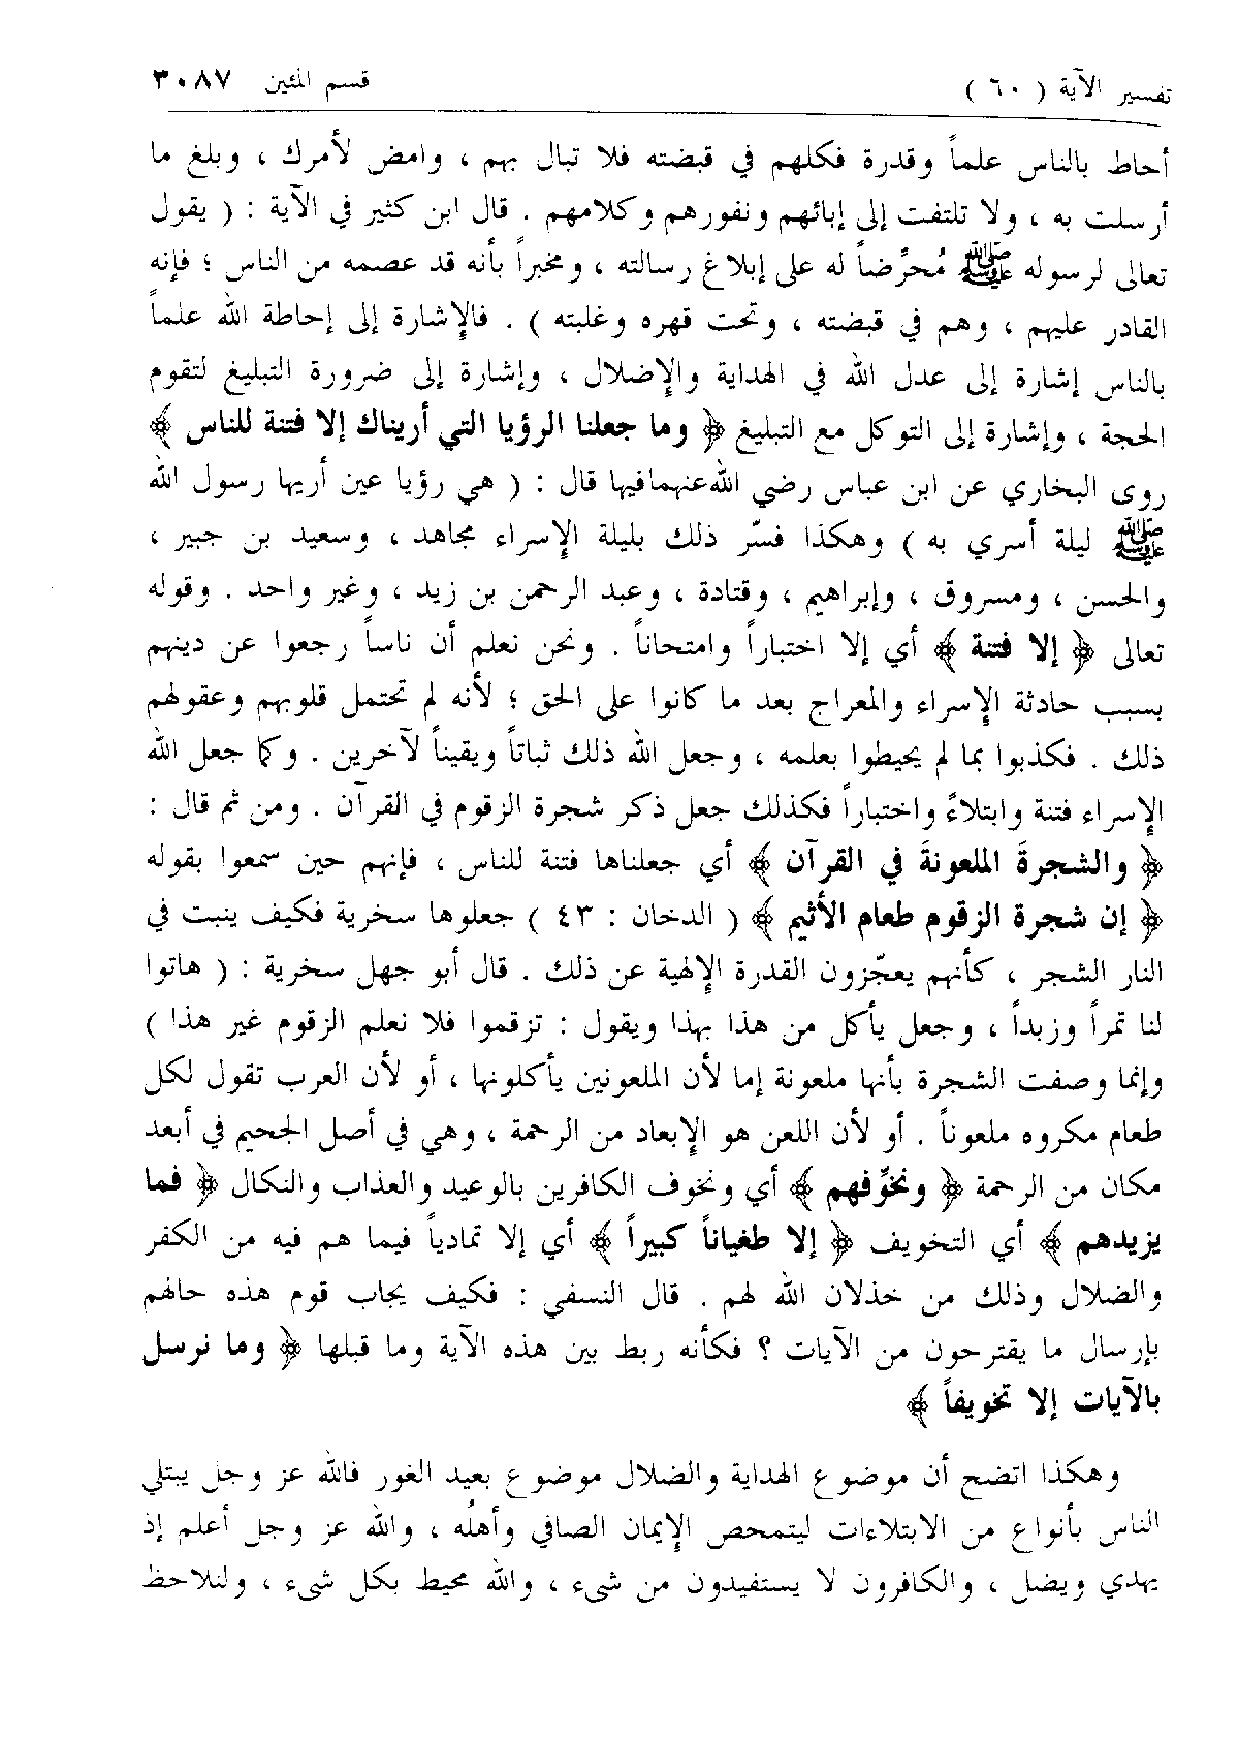 تفسير الآية ( ٦٠ ) قسم المئين ٣٠٨٧
أحاط بالناس علماً وقدرة فكلهم في قبضته فلا تبال بهم ، وامض لأمرك ، وبلغ ما
أرسلت به ، ولا تلتفت إلى إبائهم ونفورهم وكلامهم . قال ابن كثير في الآية : ( يقول
تعالى لرسوله ﷺ مُحرِّضاً له على إبلاغ رسالته ، ومخبراً بأنه قد عصمه من الناس ؛ فإنه
القادر عليهم ، وهم في قبضته ، وتحت قهره وغلبته ) . فالإشارة إلى إحاطة الله علماً
بالناس إشارة إلى عدل الله في الهداية والإضلال ، وإشارة إلى ضرورة التبليغ لتقوم
الحجة ، وإشارة إلى التوكل مع التبليغ ﴿ وما جعلنا الرؤيا التي أريناك إلا فتنة للناس ﴾
روى البخاري عن ابن عباس رضي الله عنهما فيها قال : ( هي رؤيا عين أريها رسول الله
ﷺ ليلة أسري به ) وهكذا فسّر ذلك بليلة الإسراء مجاهد ، وسعيد بن جبير ،
والحسن ، ومسروق ، وإبراهيم ، وقتادة ، وعبد الرحمن بن زيد ، وغير واحد . وقوله
تعالى ﴿ إلا فتنة ﴾ أي إلا اختباراً وامتحاناً . ونحن نعلم أن ناساً رجعوا عن دينهم
بسبب حادثة الإسراء والمعراج بعد ما كانوا على الحق ؛ لأنه لم تحتمل قلوبهم وعقولهم
ذلك . فكذبوا بما لم يحيطوا بعلمه ، وجعل الله ذلك ثباتاً ويقيناً لآخرين . وكما جعل الله
الإسراء فتنة وابتلاءً واختباراً فكذلك جعل ذكر شجرة الزقوم في القرآن . ومن ثم قال :
﴿ والشجرةَ الملعونةَ في القرآن ﴾ أي جعلناها فتنة للناس ، فإنهم حين سمعوا بقوله
﴿ إن شجرة الزقوم طعام الأثيم ﴾ ( الدخان : ٤٣ ) جعلوها سخرية فكيف ينبت في
النار الشجر ، كأنهم يعجّزون القدرة الإلهية عن ذلك . قال أبو جهل سخرية : ( هاتوا
لنا تمراً وزبداً ، وجعل يأكل من هذا بهذا ويقول : تزقموا فلا نعلم الزقوم غير هذا )
وإنما وصفت الشجرة بأنها ملعونة إما لأن الملعونين يأكلونها ، أو لأن العرب تقول لكل
طعام مكروه ملعوناً . أو لأن اللعن هو الإبعاد من الرحمة ، وهي في أصل الجحيم في أبعد
مكان من الرحمة ﴿ ونخوِّفهم ﴾ أي ونخوف الكافرين بالوعيد والعذاب والنكال ﴿ فما
يزيدهم ﴾ أي التخويف ﴿ إلا طغياناً كبيراً ﴾ أي إلا تمادياً فيما هم فيه من الكفر
والضلال وذلك من خذلان الله لهم . قال النسفي : فكيف يجاب قوم هذه حالهم
بإرسال ما يقترحون من الآيات ؟ فكأنه ربط بين هذه الآية وما قبلها ﴿ وما نرسل
بالآيات إلا تخويفاً ﴾
وهكذا اتضح أن موضوع الهداية والضلال موضوع بعيد الغور فالله عز وجل يبتلي
الناس بأنواع من الابتلاءات ليتمحص الإيمان الصافي وأهلُه ، والله عز وجل أعلم إذ
يهدي ويضل ، والكافرون لا يستفيدون من شىء ، والله محيط بكل شىء ، ولنلاحظ